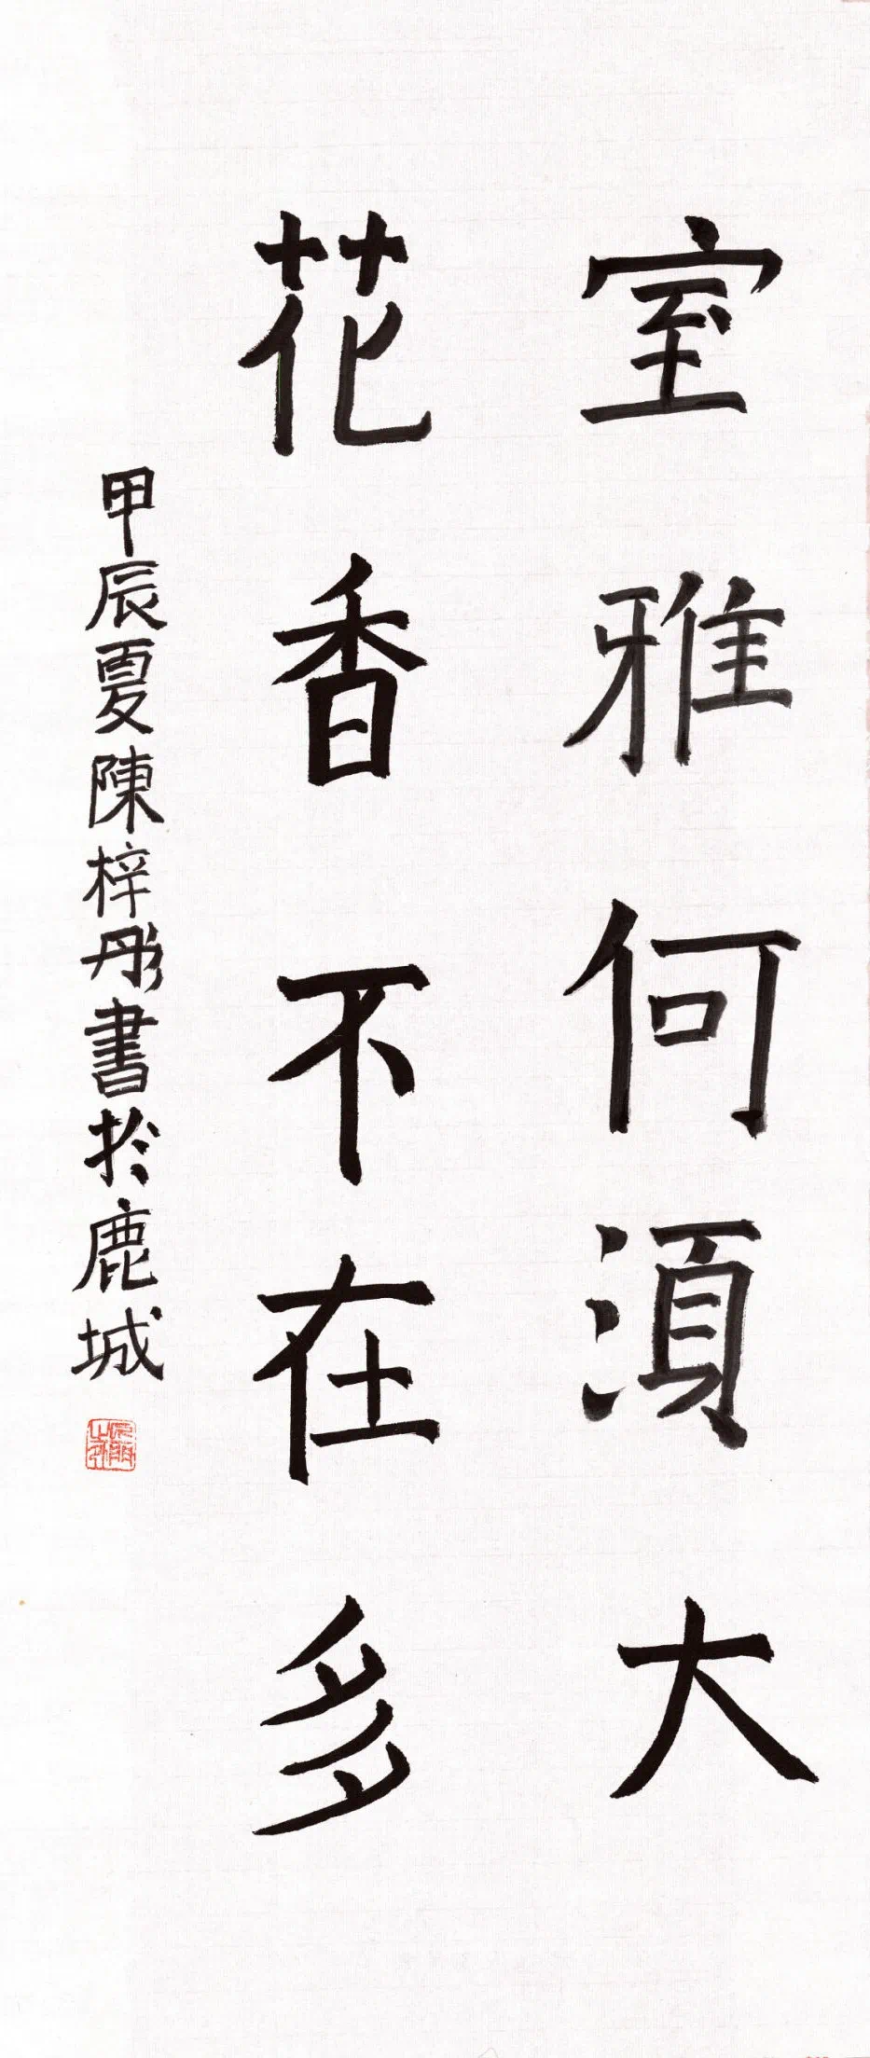 室雅何湏大
花香不在多
甲辰夏陳梓彤書於鹿城